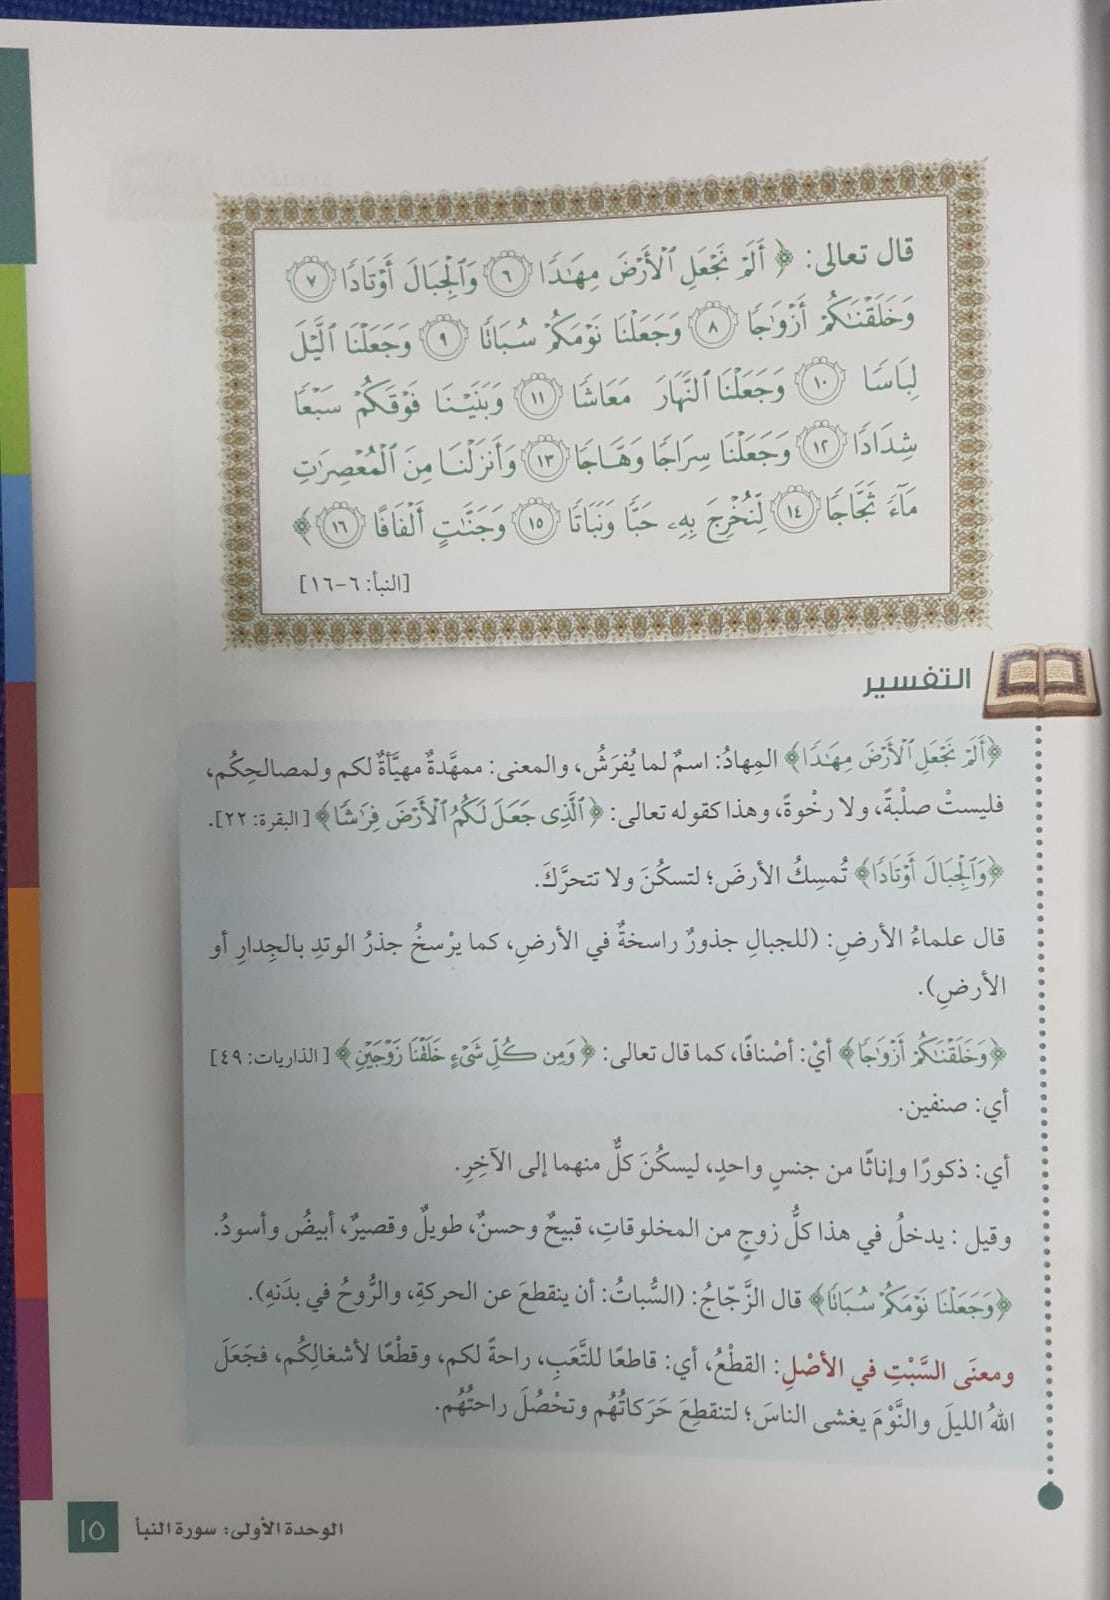 قال تعالى: ﴿ أَلَمْ نَجْعَلِ ٱلْأَرْضَ مِهَٰدًا ٦ وَٱلْجِبَالَ أَوْتَادًا ٧
وَخَلَقْنَٰكُمْ أَزْوَٰجًا ٨ وَجَعَلْنَا نَوْمَكُمْ سُبَاتًا ٩ وَجَعَلْنَا ٱلَّيْلَ
لِبَاسًا ١٠ وَجَعَلْنَا ٱلنَّهَارَ مَعَاشًا ١١ وَبَنَيْنَا فَوْقَكُمْ سَبْعًا
شِدَادًا ١٢ وَجَعَلْنَا سِرَاجًا وَهَّاجًا ١٣ وَأَنزَلْنَا مِنَ ٱلْمُعْصِرَٰتِ
مَآءً ثَجَّاجًا ١٤ لِّنُخْرِجَ بِهِۦ حَبًّا وَنَبَاتًا ١٥ وَجَنَّٰتٍ أَلْفَافًا ١٦ ﴾
[النبأ: ٦-١٦]
التفسير
﴿أَلَمْ نَجْعَلِ ٱلْأَرْضَ مِهَٰدًا﴾ المِهادُ: اسمٌ لما يُفرَشُ، والمعنى: ممهَّدةٌ مهيَّأةٌ لكم ولمصالحِكُم،
فليستْ صلْبةً، ولا رخْوةً، وهذا كقوله تعالى: ﴿ٱلَّذِى جَعَلَ لَكُمُ ٱلْأَرْضَ فِرَٰشًا﴾ [البقرة: ٢٢].
﴿وَٱلْجِبَالَ أَوْتَادًا﴾ تُمسِكُ الأرضَ؛ لتسكُنَ ولا تتحرَّكَ.
قال علماءُ الأرضِ: (للجبالِ جذورٌ راسخةٌ في الأرضِ، كما يرْسخُ جذرُ الوتدِ بالجِدارِ أو
الأرضِ).
﴿وَخَلَقْنَٰكُمْ أَزْوَٰجًا﴾ أيْ: أصْنافًا، كما قال تعالى: ﴿وَمِن كُلِّ شَىْءٍ خَلَقْنَا زَوْجَيْنِ﴾ [الذاريات: ٤٩]
أي: صنفين.
أي: ذكورًا وإناثًا من جنسٍ واحدٍ، ليسكُنَ كلٌّ منهما إلى الآخِرِ.
وقيل : يدخلُ في هذا كلُّ زوجٍ من المخلوقاتِ، قبيحٌ وحسنٌ، طويلٌ وقصيرٌ، أبيضُ وأسودُ.
﴿وَجَعَلْنَا نَوْمَكُمْ سُبَاتًا﴾ قال الزَّجّاجُ: (السُّباتُ: أن ينقطعَ عن الحركةِ، والرُّوحُ في بدَنهِ).
ومعنَى السَّبْتِ في الأصْلِ: القطْعُ، أي: قاطعًا للتَّعَبِ، راحةً لكم، وقطْعًا لأشغالِكُم، فجَعَلَ
اللهُ الليلَ والنَّوْمَ يغشى الناسَ؛ لتنقطِعَ حَرَكاتُهُم وتحْصُلَ راحتُهُم.
الوحدة الأولى: سورة النبأ ١٥